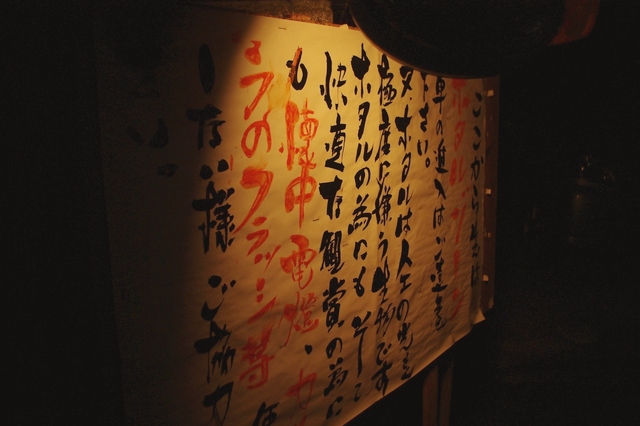 ここからおよそ
ホタル
車の進入はご遠慮
下さい。
又、ホタルは人工の光を
極度に嫌う生物です
ホタルの為にも そして
快適な観賞の為に
も 懐中電燈、カメ
ラのフラッシュ等 使
しない様 ご協力